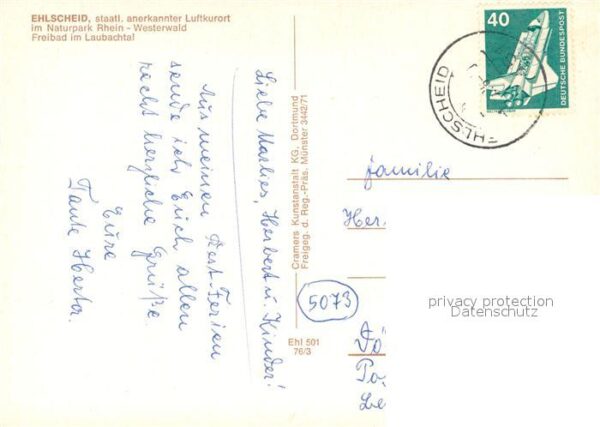 EHLSCHEID, staatl. anerkannter Luftkurort
im Naturpark Rhein - Westerwald
Freibad im Laubachtal
Liebe Marlies, Herbert u. Kinder!
Aus meinen Rest-Ferien
sende ich Euch allen
recht herzliche Grüße.
Eure
Tante Herta.
Cramers Kunstanstalt KG, Dortmund
Freigeg. d. Reg.-Präs. Münster 3442/71
5073
Ehl 501
76/3
40
DEUTSCHE BUNDESPOST
EHLSCHEID
familie
Her
privacy protection
Datenschutz